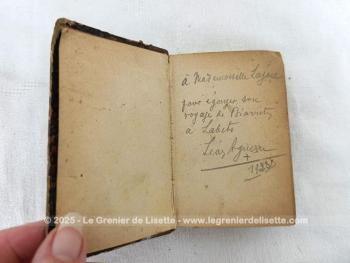 à Mademoiselle
pour égayer son
voyage de Biarritz
à Labets
Léas
© 2025 - Le Grenier de Lisette - www.legrenierdelisette.com